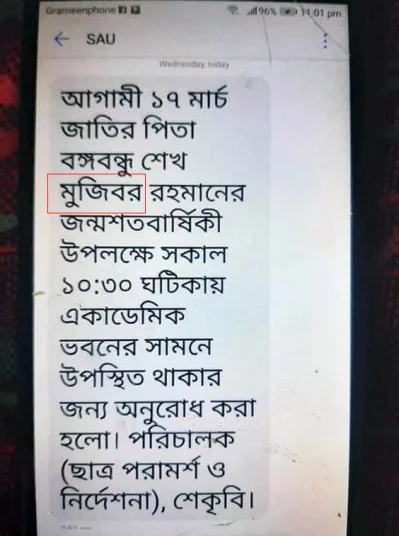 Grameenphone
96% 11:01 pm
SAU
Wednesday, today
আগামী ১৭ মার্চ
জাতির পিতা
বঙ্গবন্ধু শেখ
মুজিবর রহমানের
জন্মশতবার্ষিকী
উপলক্ষে সকাল
১০:৩০ ঘটিকায়
একাডেমিক
ভবনের সামনে
উপস্থিত থাকার
জন্য অনুরোধ করা
হলো। পরিচালক
(ছাত্র পরামর্শ ও
নির্দেশনা), শেকৃবি।